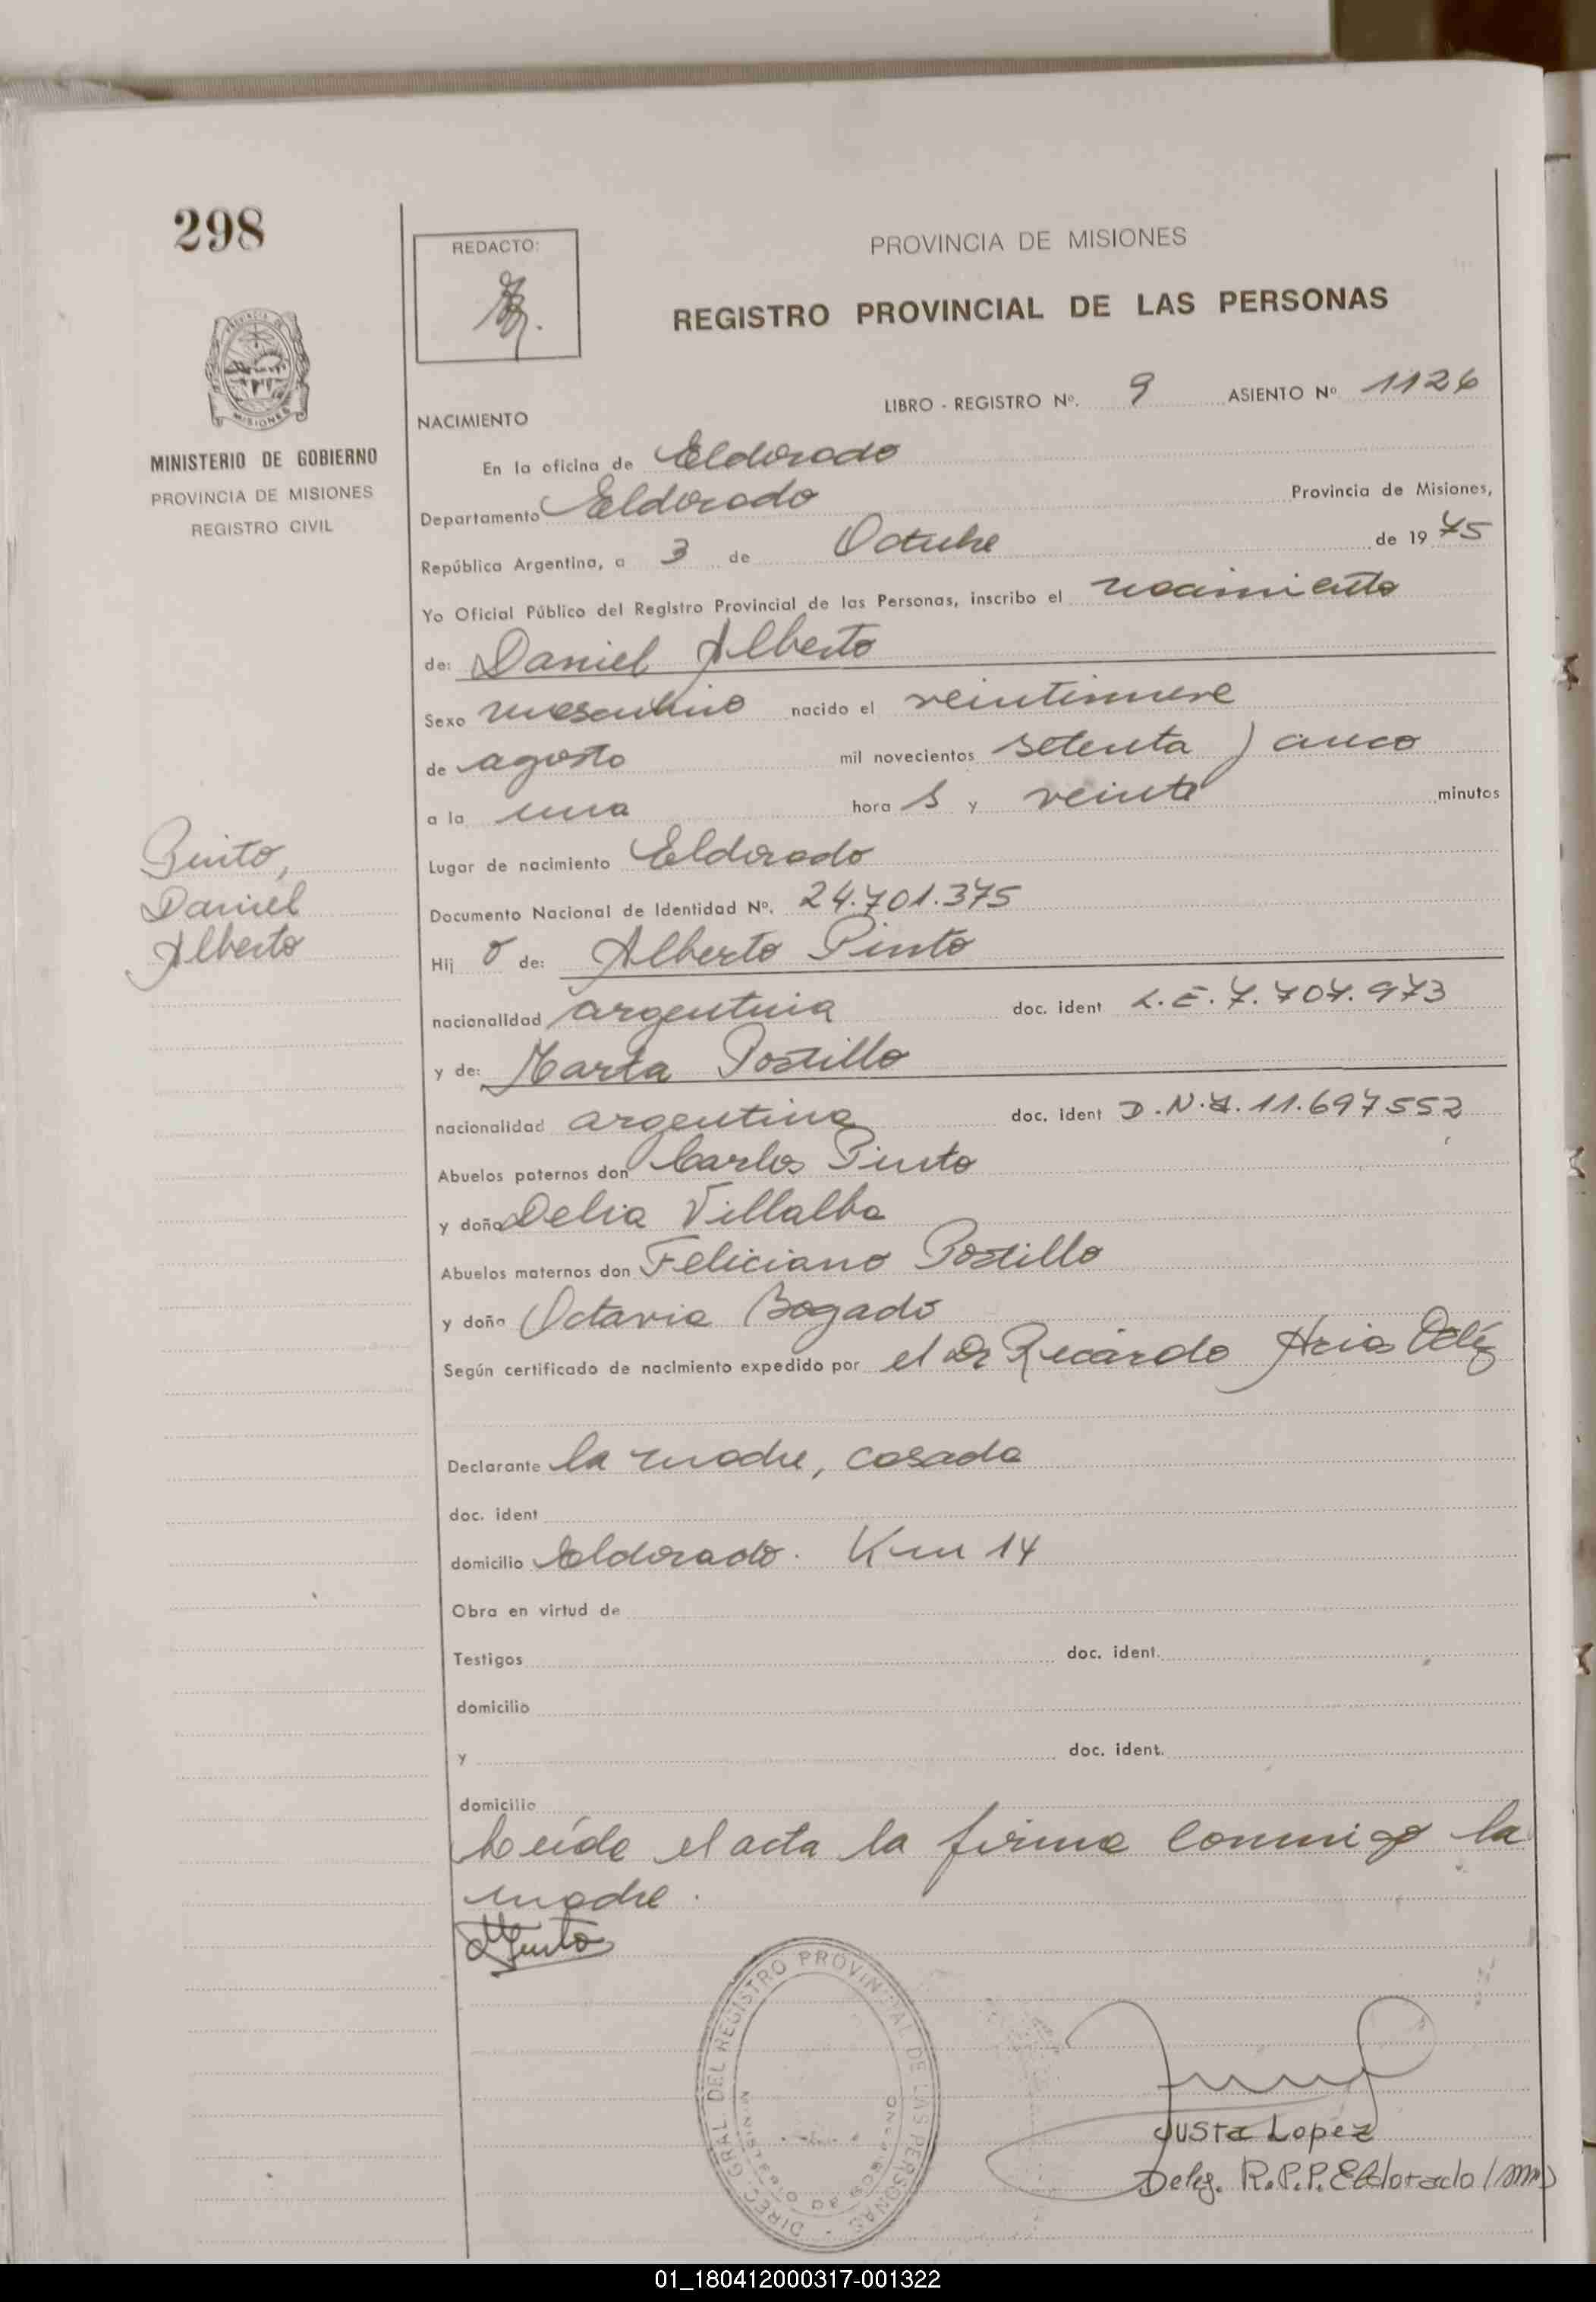 298
REDACTO:
PROVINCIA DE MISIONES
REGISTRO PROVINCIAL DE LAS PERSONAS
MISIONES
MINISTERIO DE GOBIERNO
PROVINCIA DE MISIONES
REGISTRO CIVIL
LIBRO - REGISTRO Nº. 9 ASIENTO Nº 1126
NACIMIENTO
En la oficina de Eldorado
Departamento Eldorado Provincia de Misiones,
República Argentina, a 3 de Octubre de 19 75
Yo Oficial Público del Registro Provincial de las Personas, inscribo el nacimiento
de: Daniel Alberto
Sexo masculino nacido el veintinueve
de agosto mil novecientos setenta y cinco
a la una hora s y veinte minutos
Lugar de nacimiento Eldorado
Pinto,
Daniel
Alberto
Documento Nacional de Identidad Nº. 24.701.375
Hij o de: Alberto Pinto
nacionalidad argentina doc. ident L.E. 7.707.973
y de: Marta Portillo
nacionalidad argentina doc. ident D.N.I. 11.697552
Abuelos paternos don Carlos Pinto
y doña Delia Villalba
Abuelos maternos don Feliciano Portillo
y doña Octavia Bogado
Según certificado de nacimiento expedido por el Dr Ricardo
Declarante la madre, casada
doc. ident
domicilio Eldorado. Km 14
Obra en virtud de
Testigos doc. ident.
domicilio
y doc. ident.
domicilio
Leída el acta la firma conmigo la
madre.
DIREC. GRAL. DEL REGISTRO PROVINCIAL DE LAS PERSONAS
MINISTERIO DE GOBIERNO
Justa Lopez
Deleg. R.P.P. Eldorado (Mnes)
01_180412000317-001322